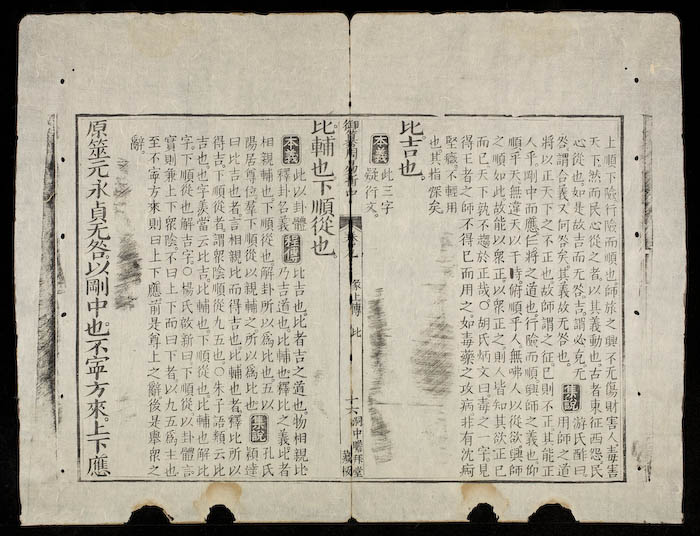 上順下險行險而順也師旅之興不无傷財害人毒害
天下然而民心從之者以其義動也古者東征西怨民
心從也如是故吉而无咎吉謂必克无
咎謂合義又何咎矣其義故无咎也
集說
游氏酢曰
用師之道
將以正天下之不正也故師謂之征已則不正其能正
人乎剛中而應仁將之道也行險而順興師之義也仰
順乎天無違天以干時俯順乎人無咈人以從欲興師
之順如此故能以衆正以衆正之則人皆知其欲正已
而已天下孰不趨於正哉○胡氏炳文曰毒之一字見
得王者之師不得已而用之如毒藥之攻病非有沈痾
堅癥不輕用
也其指深矣
比吉也
本義
此三字
疑衍文
御纂周易折中
彖上傳 比
十六
比輔也下順從也
本義
此以卦體
釋卦名義
程傳
比吉也比者吉之道也物相親比
乃吉道也比輔也釋比之義比者
相親輔也下順從也解卦所以爲比也五以
陽居尊位羣下順從以親輔之所以爲比也
集說
孔氏
穎達
曰比吉也者言相親比而得吉也比輔也者釋比所以
得吉下順從者謂衆陰順從九五也○朱子語類云比
吉也也字羨當云比吉比輔也下順從也比輔也解比
字下順從也解吉字○楊氏啟新曰下順從以卦體言
實則兼上下衆陰不曰上下而曰下者以九五爲主也
至不寧方來則曰上下應前是尊上之辭後是舉衆之
辭
原筮元永貞无咎以剛中也不寧方來上下應